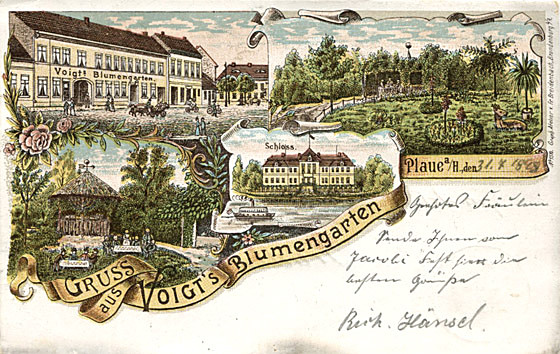 Voigt's Blumengarten
Schloss.
Plaue a/H., den 31. 7. 189
GRUSS
aus VOIGT'S Blumengarten
Geehrtes Fräulein
Sende Ihnen vom
Jacobi Fest hier die
besten Grüße
Rich. Hänsel.